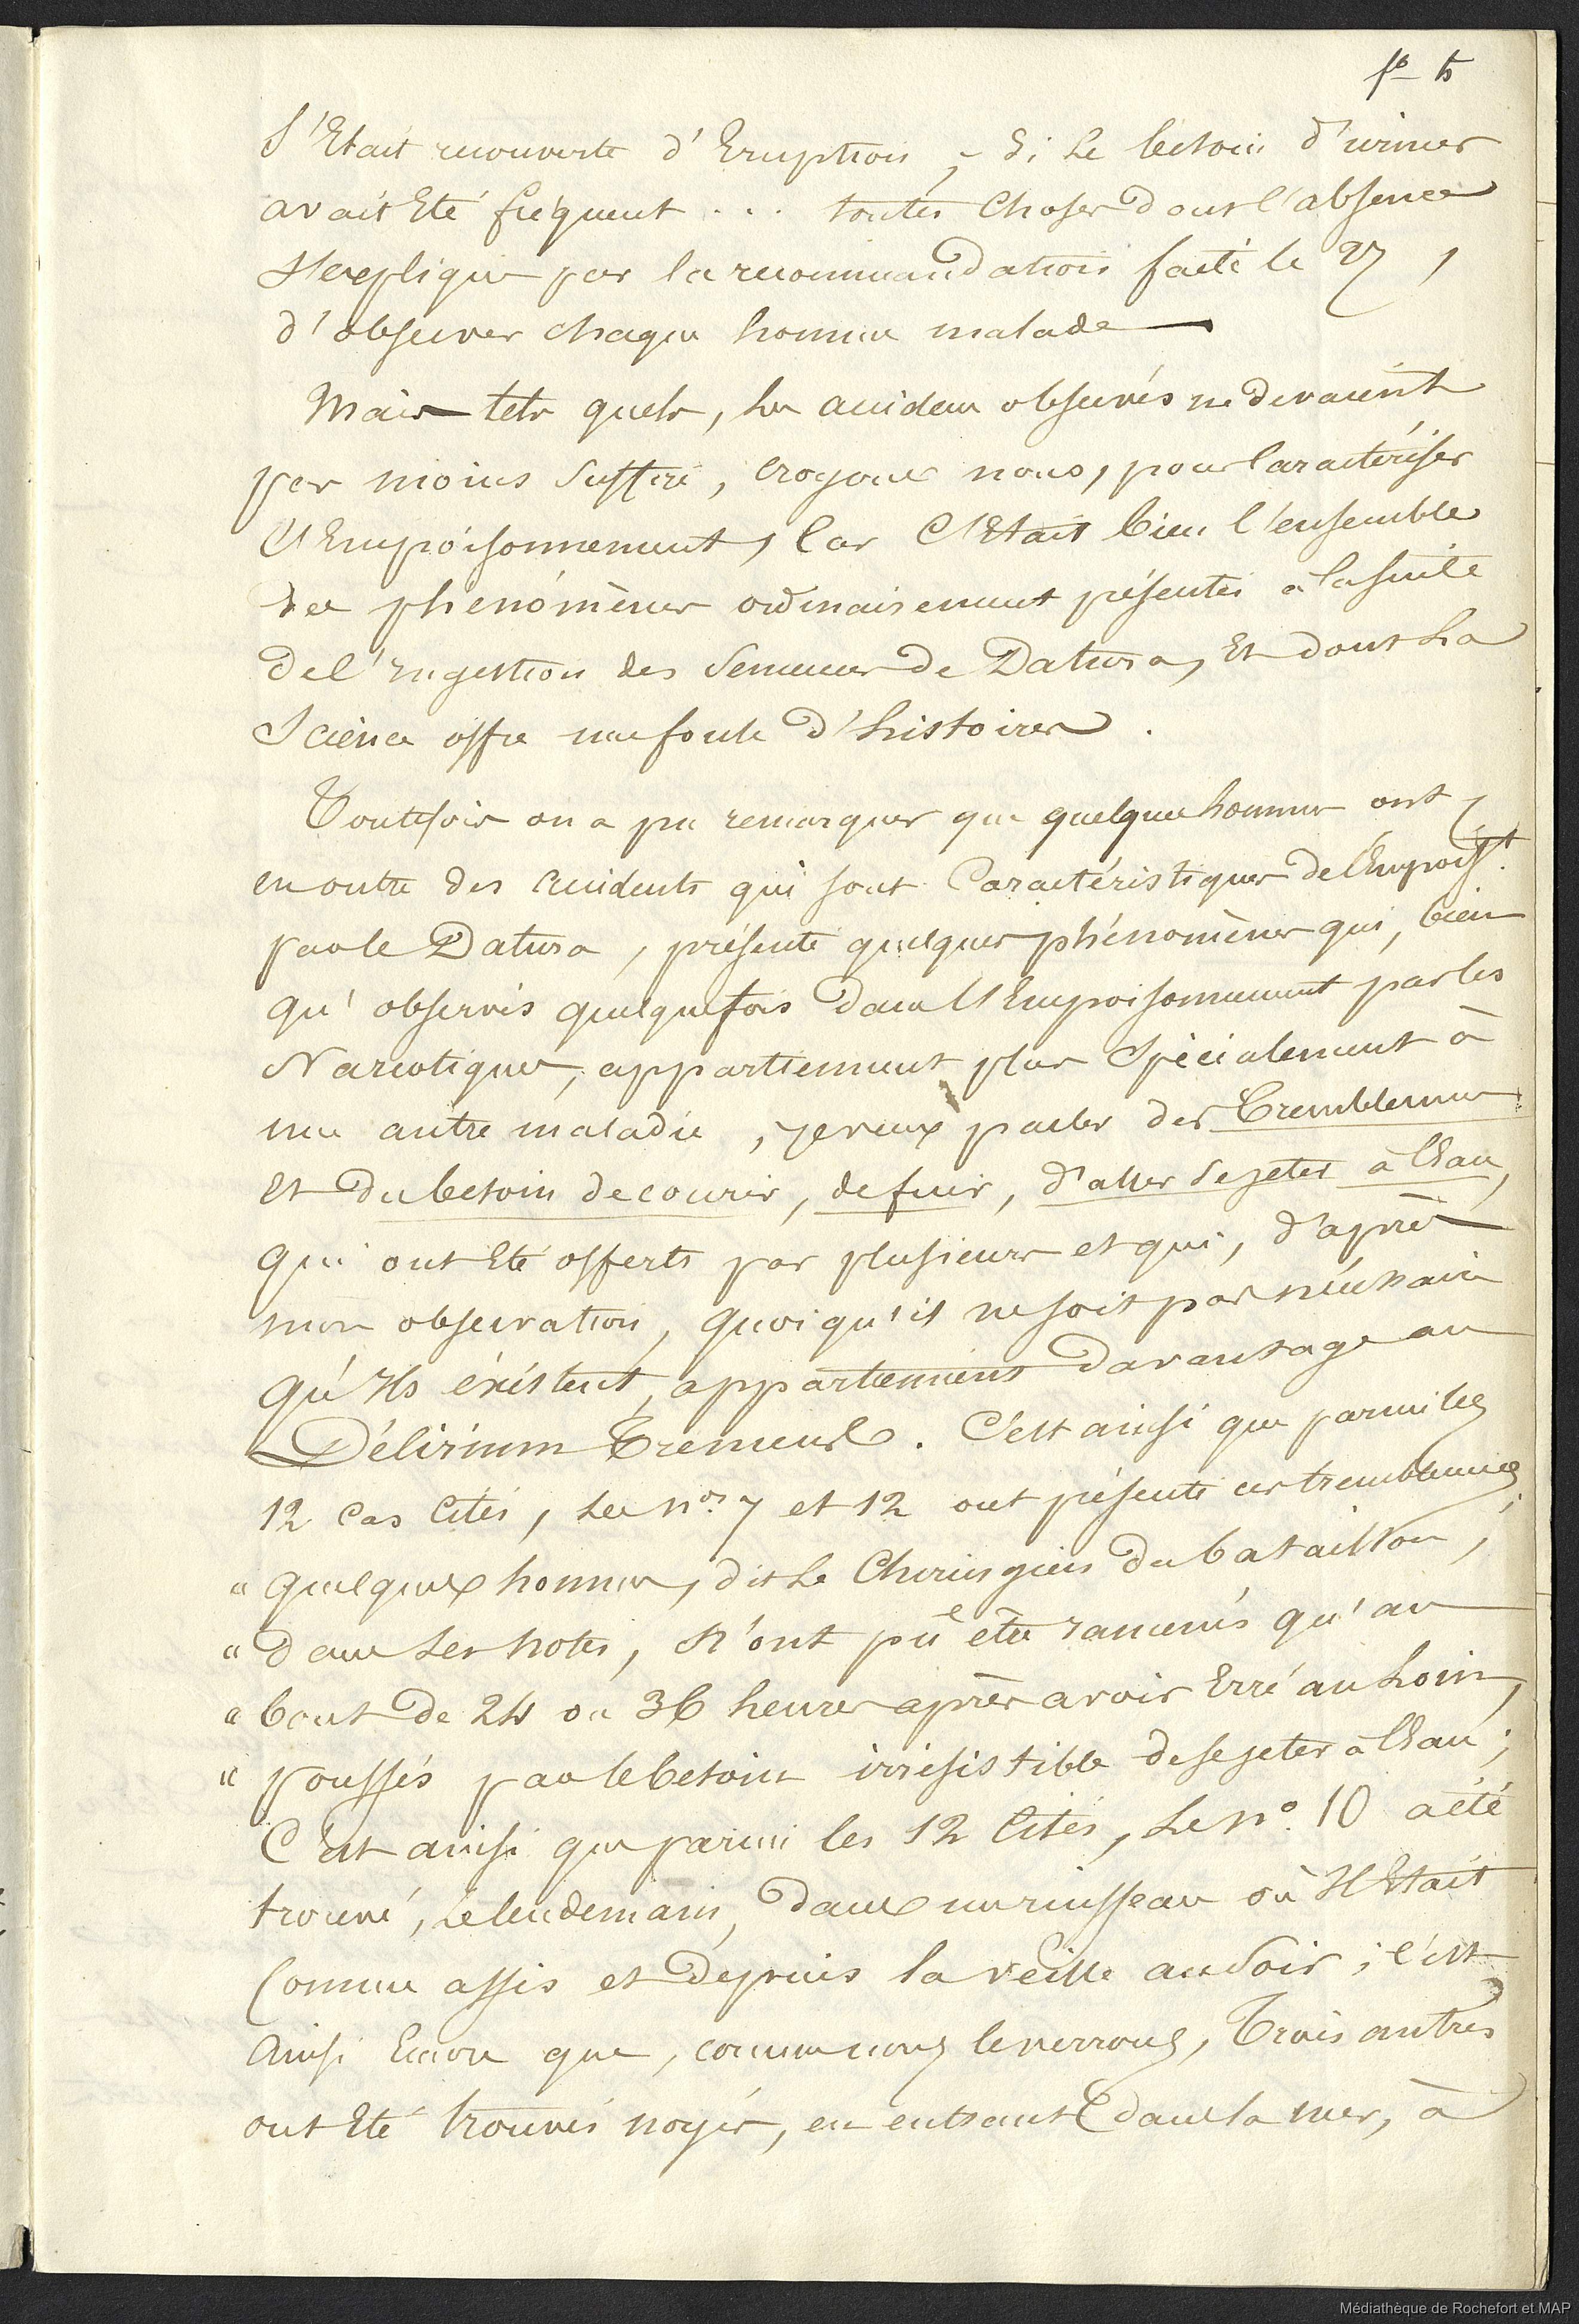 fo 5
S'Etait recouverte d'Eruption, - Si le besoin d'uriner
avait Eté fréquent ... toutes Choses dont l'absence
s'explique par la recommandation faite le 27,
d'observer chaque homme malade
Mais tels quels, les accidens observés ne devraient
pas moins Suffire, Croyons nous, pour Caractériser
l'Empoisonnement, Car C'Etait bien l'ensemble
des phénomènes ordinairement présentés à la suite
de l'Ingestion des Semences de Datura, Et dont La
Science offre une foule d'histoires.
Toutefois on a pu remarquer que quelques hommes ont,
en outre des accidents qui sont Caractéristiques de l'Empoist.
par le Datura, présenté quelques phénomènes qui, bien
qu'observés quelquefois dans l'Empoisonnement par les
Narcotiques, appartiennent plus Spécialement à
une autre maladie, je veux parler des Tremblemens
Et du besoin de courir, de fuir, d'aller Se jeter à l'Eau,
qui ont Eté offerts par plusieurs et qui, d'après
mon observation, quoiqu'il ne soit pas nécessaire
qu'Ils éxistent, appartiennent davantage au
Délirium Tremens. C'est ainsi que parmi les
12 Cas Cités, Les nos. 7 et 12 ont présenté ces tremblemens;
" quelques hommes, dit Le Chirurgien du bataillon,
" dans Ses notes, N'ont pû être ramenés qu'au
" bout de 24 ou 36 heures après avoir Erré au Loin,
" poussés par le besoin irrésistible de se jeter à l'Eau;
C'est ainsi que parmi les 12 Cités, Le no. 10 a été
trouvé, Le lendemain, dans un ruisseau où Il Etait
Comme assis et depuis la veille au Soir; C'est
ainsi Encore que, comme nous le verrons, Trois autres
ont Eté trouvés noyés, en entrant dans la mer, à
Médiathèque de Rochefort et MAP